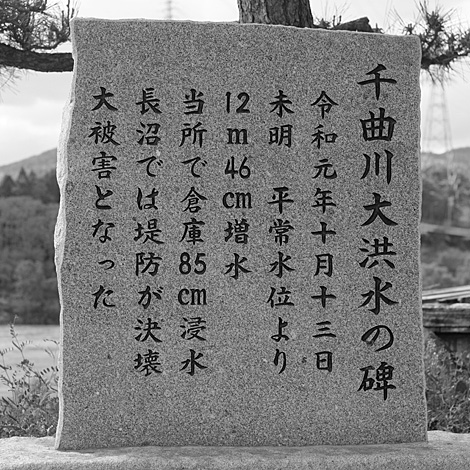 千曲川大洪水の碑
令和元年十月十三日
未明　平常水位より
12m46cm増水
当所で倉庫85cm浸水
長沼では堤防が決壊
大被害となった